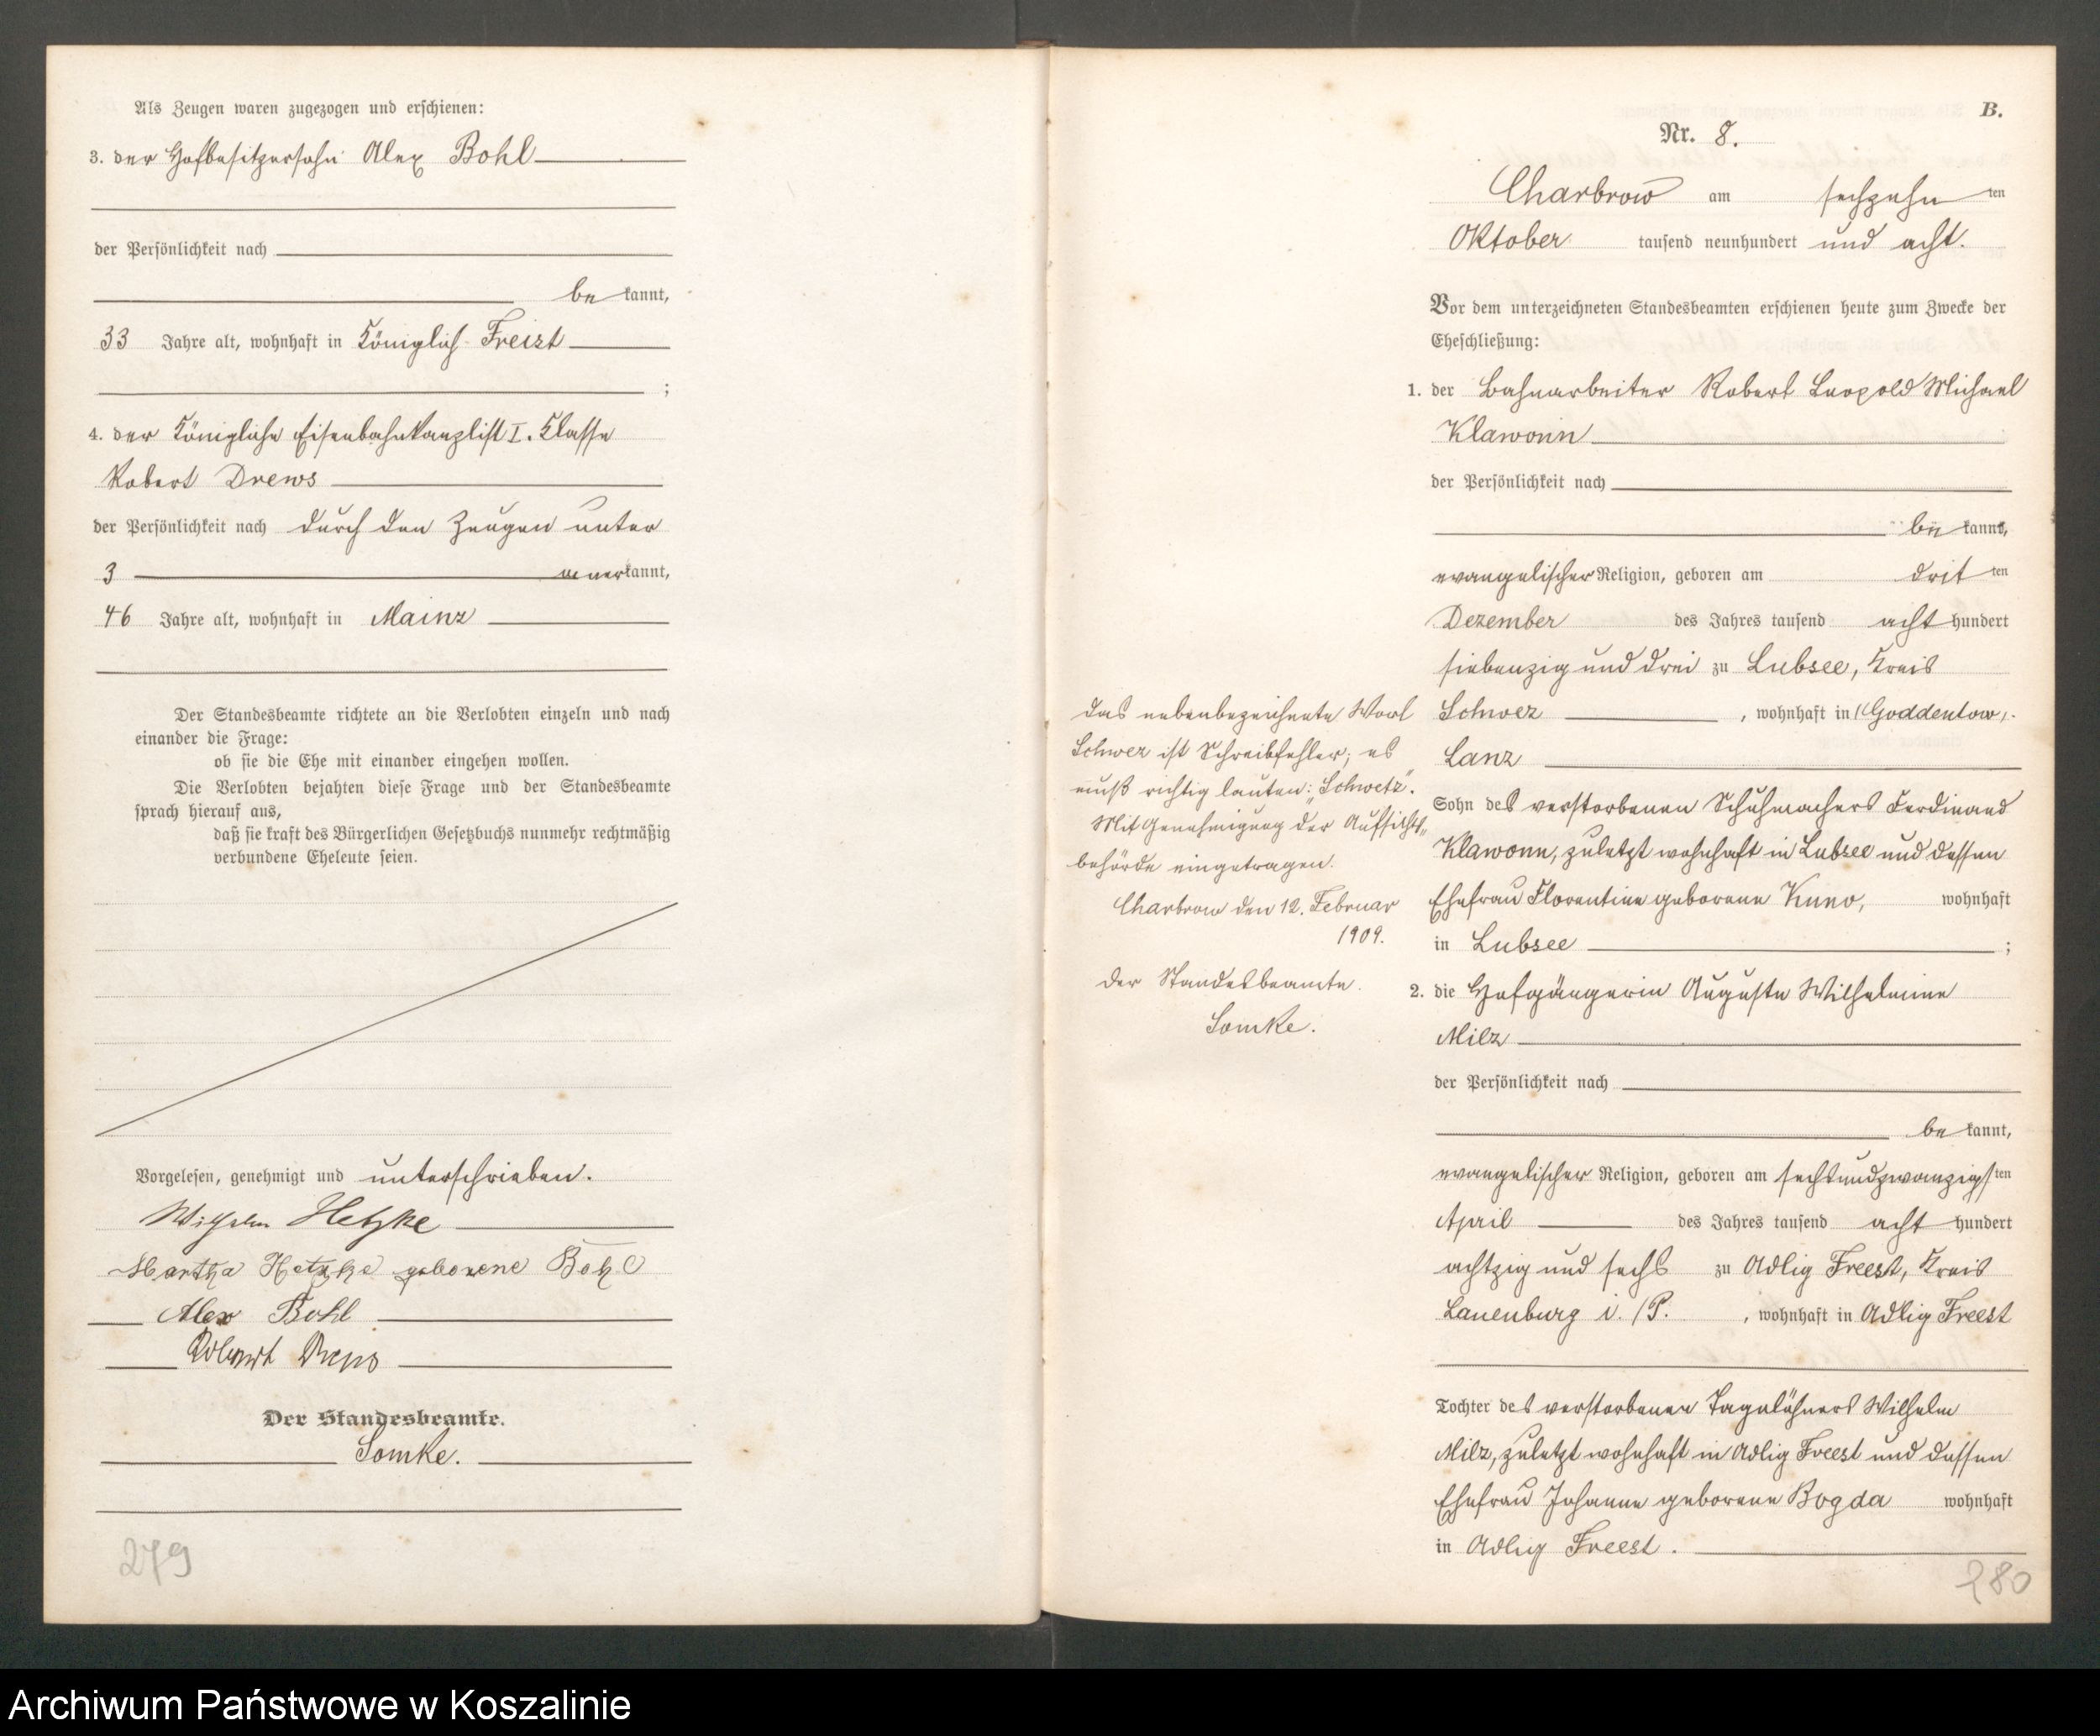 Als Zeugen waren zugezogen und erschienen:
3. der Hofbesitzersohn Alex Bohl
der Persönlichkeit nach
be kannt,
33 Jahre alt, wohnhaft in Königlich Freist
;
4. der Königliche Eisenbahnkanzlist I. Klasse
Robert Drews
der Persönlichkeit nach durch den Zeugen unter
3 anerkannt,
46 Jahre alt, wohnhaft in Mainz
Der Standesbeamte richtete an die Verlobten einzeln und nach
einander die Frage:
ob sie die Ehe mit einander eingehen wollen.
Die Verlobten bejahten diese Frage und der Standesbeamte
sprach hierauf aus,
daß sie kraft des Bürgerlichen Gesetzbuchs nunmehr rechtmäßig
verbundene Eheleute seien.
Vorgelesen, genehmigt und unterschrieben.
Wilhelm Hetzke
Martha Hetzke geborene Bohl
Alex Bohl
Robert Drews
Der Standesbeamte.
Somke.
279
B.
Nr. 8.
Charbrow am sechzehn ten
Oktober tausend neunhundert und acht.
Vor dem unterzeichneten Standesbeamten erschienen heute zum Zwecke der
Eheschließung:
1. der Bahnarbeiter Robert Leopold Michael
Klawonn
der Persönlichkeit nach
be kannt,
evangelischer Religion, geboren am drit ten
Dezember des Jahres tausend acht hundert
siebenzig und drei zu Lubsee, Kreis
Schwez, wohnhaft in Goddentow,
Lanz
Sohn des verstorbenen Schuhmachers Ferdinand
Klawonn, zuletzt wohnhaft in Lubsee und dessen
Ehefrau Florentine geborene Kuno, wohnhaft
in Lubsee ;
2. die Hofgängerin Auguste Wilhelmine
Milz
der Persönlichkeit nach
be kannt,
evangelischer Religion, geboren am sechsundzwanzigsten
April des Jahres tausend acht hundert
achtzig und sechs zu Adlig Freest, Kreis
Lauenburg i./P., wohnhaft in Adlig Freest
Tochter des verstorbenen Tagelöhners Wilhelm
Milz, zuletzt wohnhaft in Adlig Freest und dessen
Ehefrau Johanne geborene Bogda wohnhaft
in Adlig Freest.
Das nebenbezeichnete Wort
Schwez ist Schreibfehler; es
muß richtig lauten: „Schwetz".
Mit Genehmigung der Aufsichts„
behörde eingetragen.
Charbrow den 12. Februar
1909.
Der Standesbeamte.
Somke.
280
Archiwum Państwowe w Koszalinie